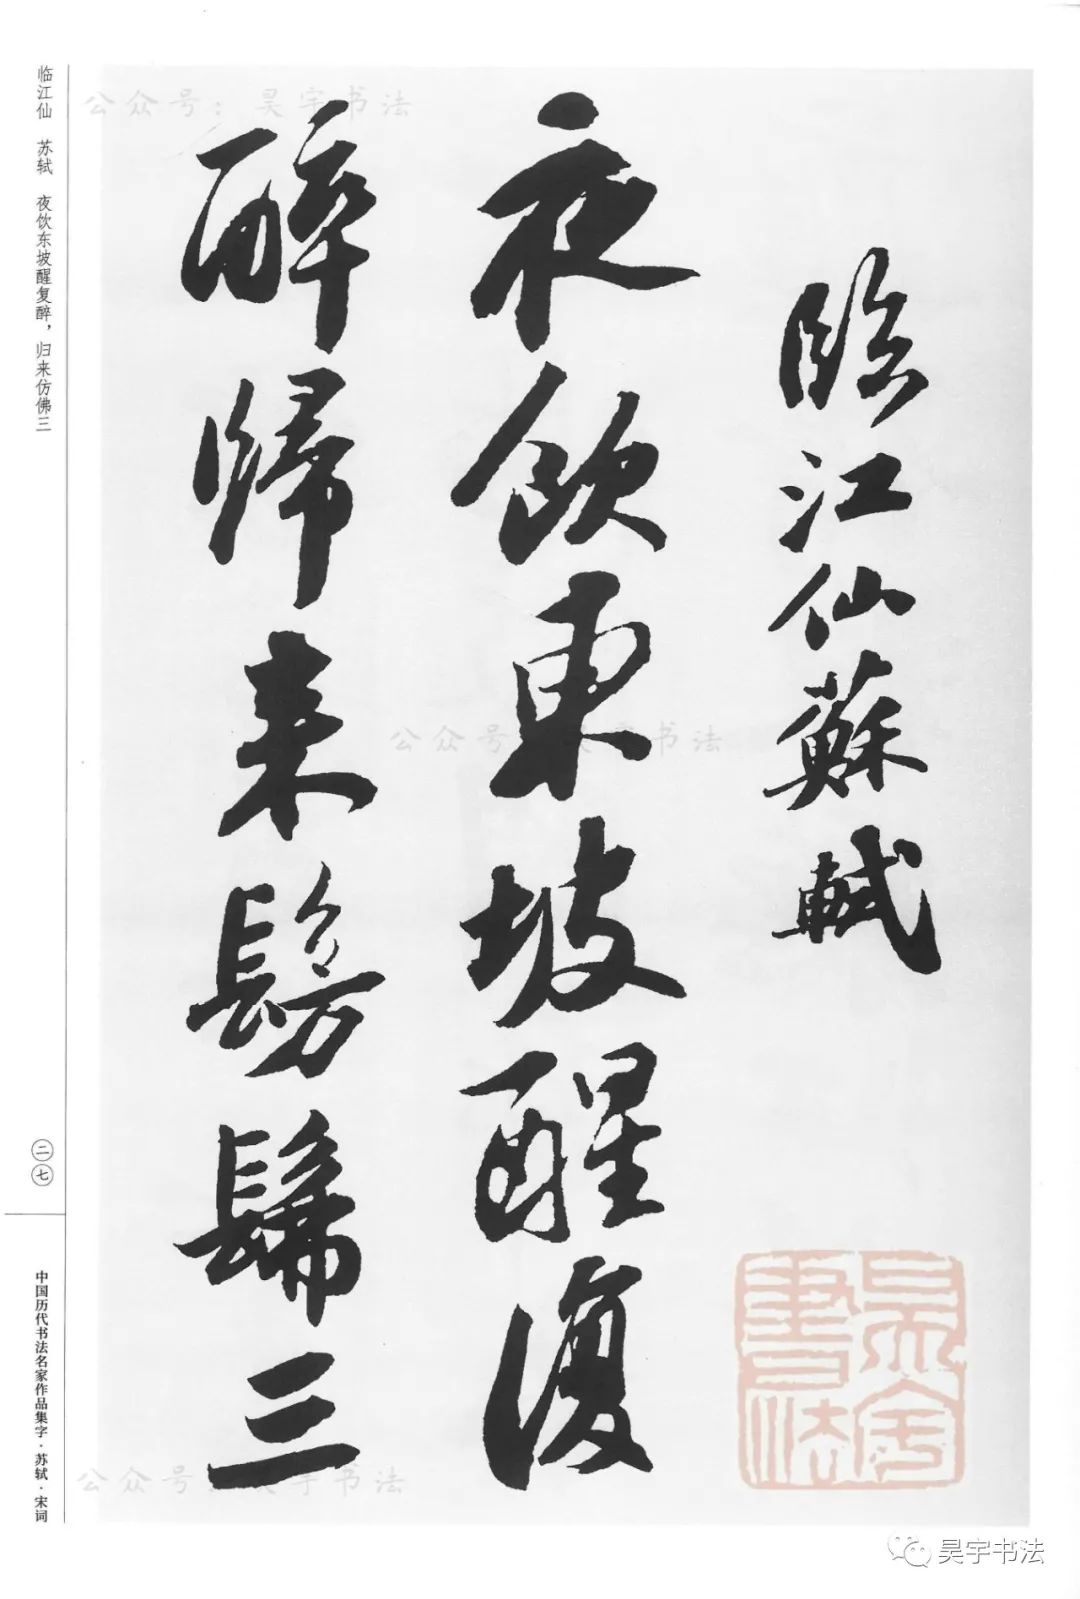 臨江仙蘇軾
夜飲東坡醒復
醉歸來髣髴三
临江仙 苏轼 夜饮东坡醒复醉，归来仿佛三
二七
中国历代书法名家作品集字·苏轼·宋词
公众号：昊宇书法
公众号：昊宇书法
公众号：昊宇书法
昊宇書法
昊宇书法